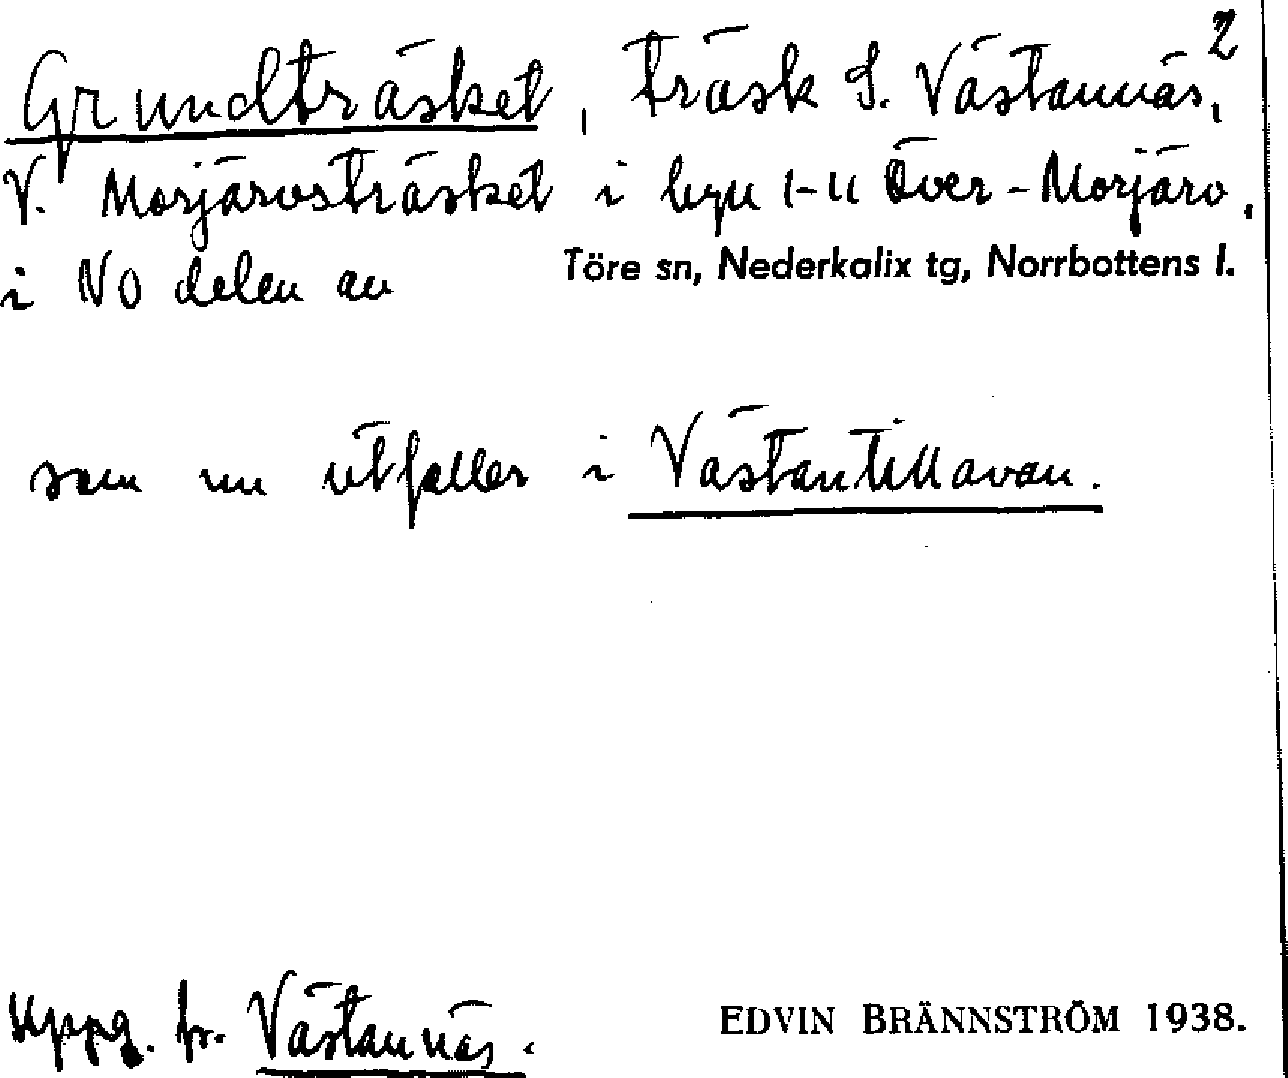 2
Grundträsket, träsk S. Västannäs,
V. Morjärvsträsket i byn 1-11 Över-Morjärv.
i NO delen av Töre sn, Nederkalix tg, Norrbottens l.
som nu utfaller i Västantillavan.
Uppg. fr. Västannäs. EDVIN BRÄNNSTRÖM 1938.